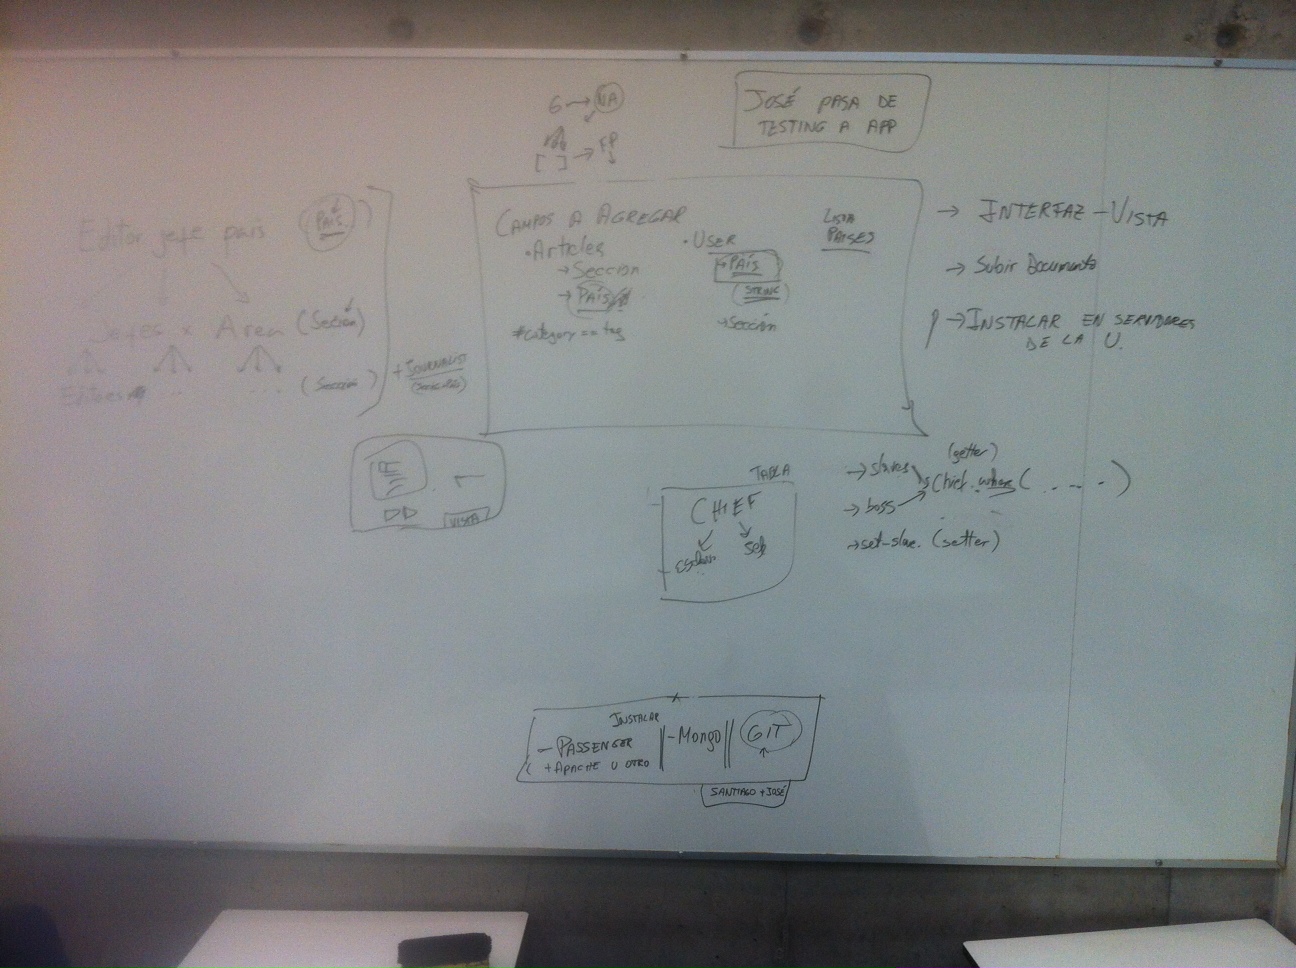 G → NA
[ ] → FP
JOSÉ PASA DE
TESTING A APP
Editor jefe país (PAÍS)
Jefes x Area (Sección)
Editores (Sección)
+ JOURNALIST
CAMPOS A AGREGAR
• Articles
→ Sección
→ PAÍS
#category == tag
• USER
→ PAÍS
(STRING)
→ Sección
LISTA
PAISES
→ INTERFAZ - VISTA
→ Subir Documento
→ INSTALAR EN SERVIDORES
DE LA U.
VISTA
TABLA
CHIEF
esclavo
→ slaves
(getter)
Chief.where( . - - . )
→ boss
→ set-slave. (setter)
INSTALAR
- PASSENGER
+ APACHE U OTRO
- Mongo
GIT
SANTIAGO + JOSÉ